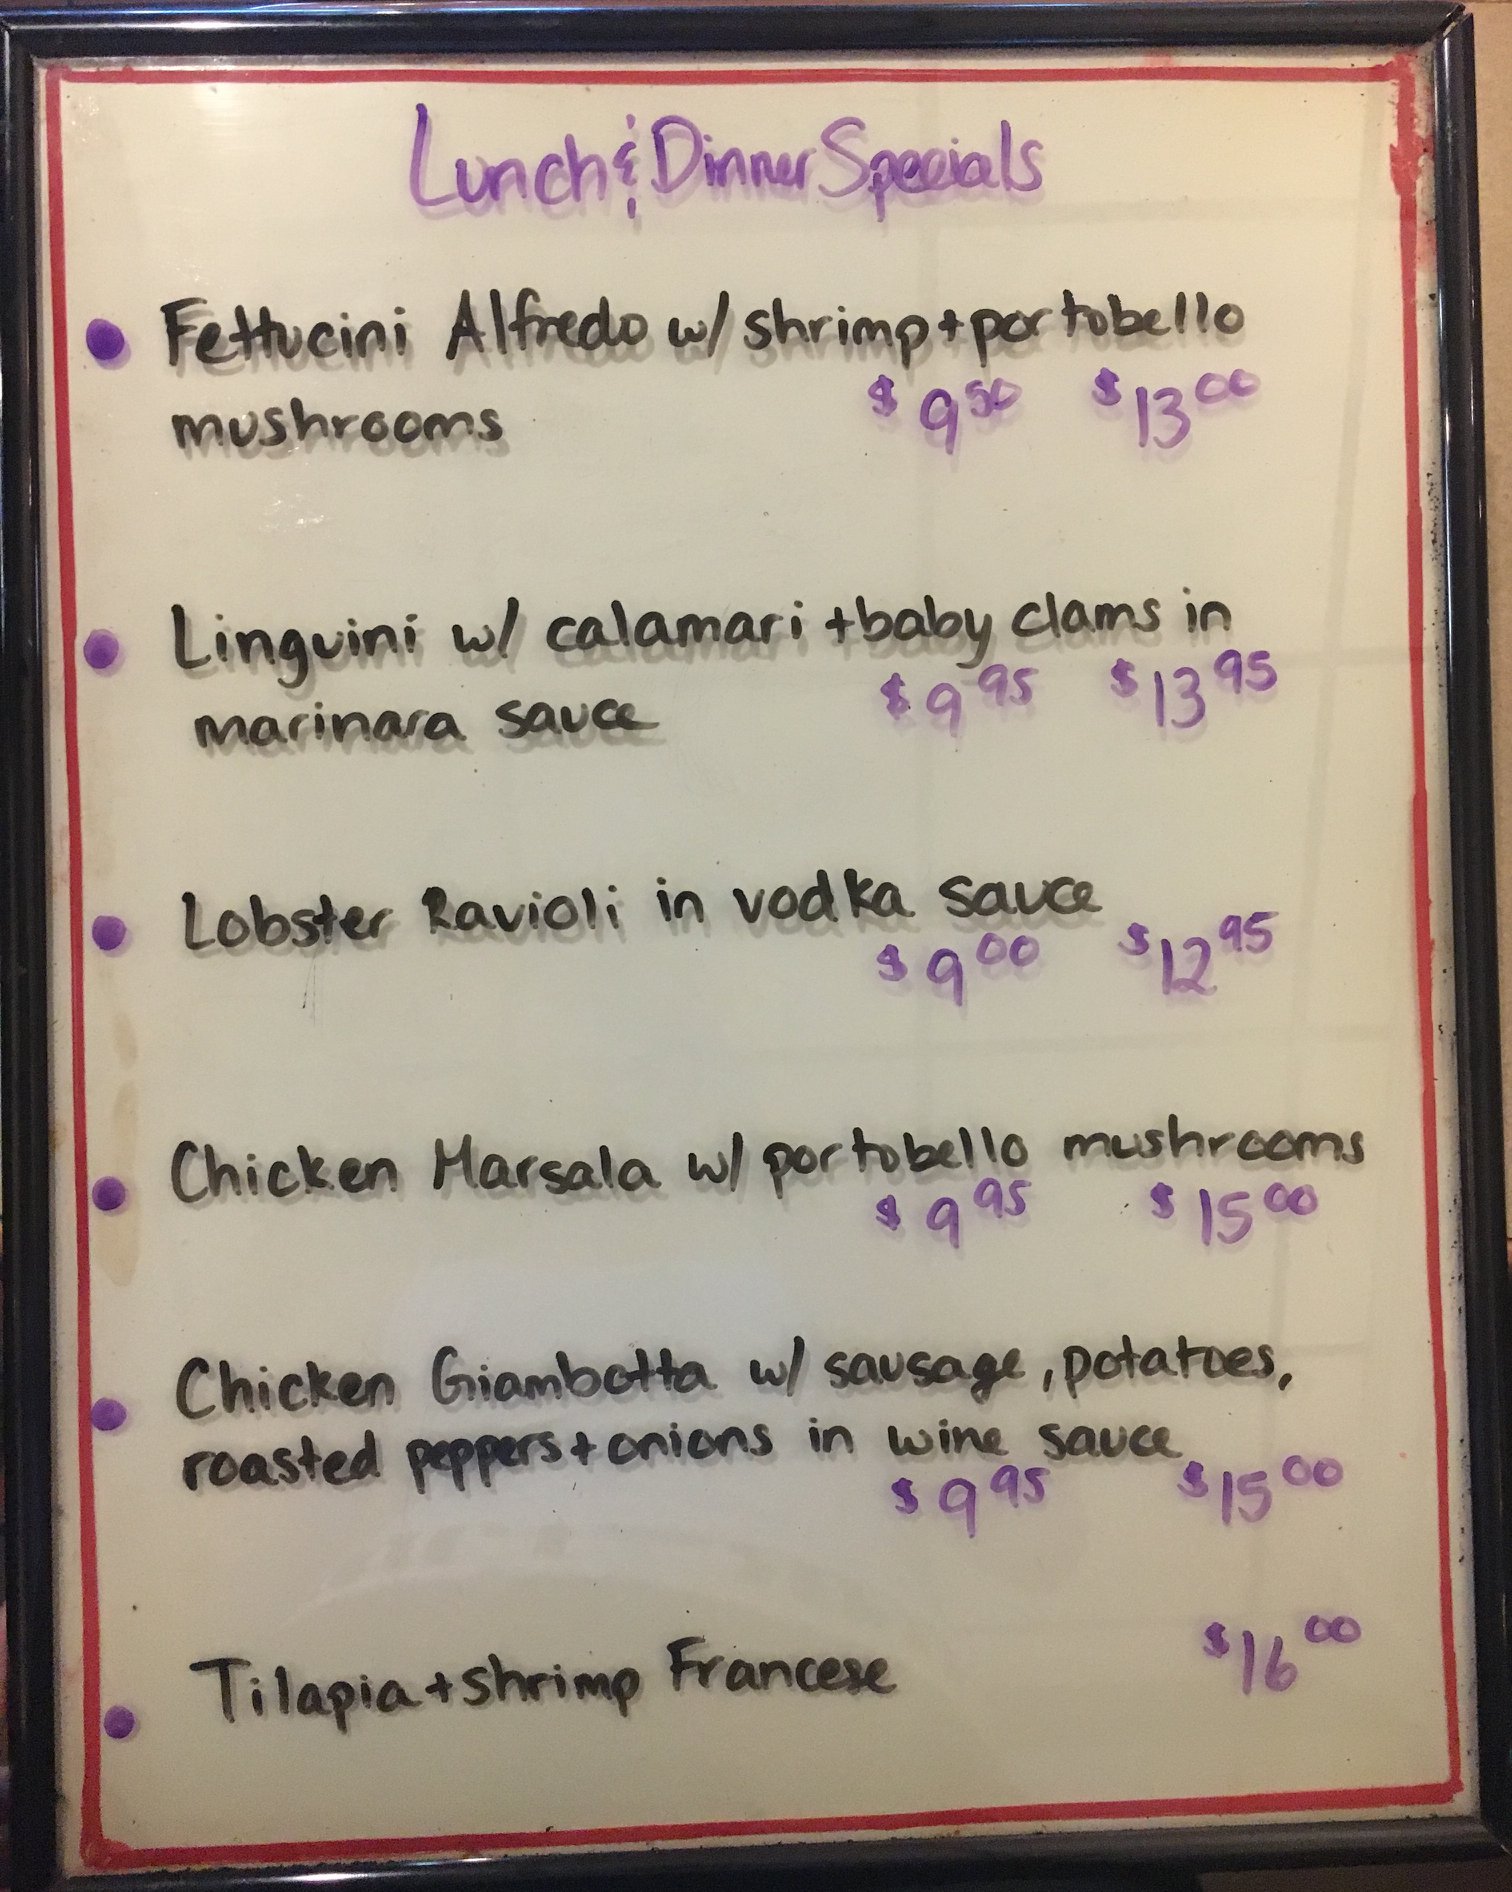 Lunch & Dinner Specials
Fettucini Alfredo w/ shrimp + portobello
mushrooms $9 50 $13 00
Linguini w/ calamari + baby clams in
marinara sauce $9 95 $13 95
Lobster Ravioli in vodka sauce
$9 00 $12 95
Chicken Marsala w/ portobello mushrooms
$9 95 $15 00
Chicken Giambotta w/ sausage, potatoes,
roasted peppers + onions in wine sauce
$9 95 $15 00
Tilapia + shrimp Francese $16 00